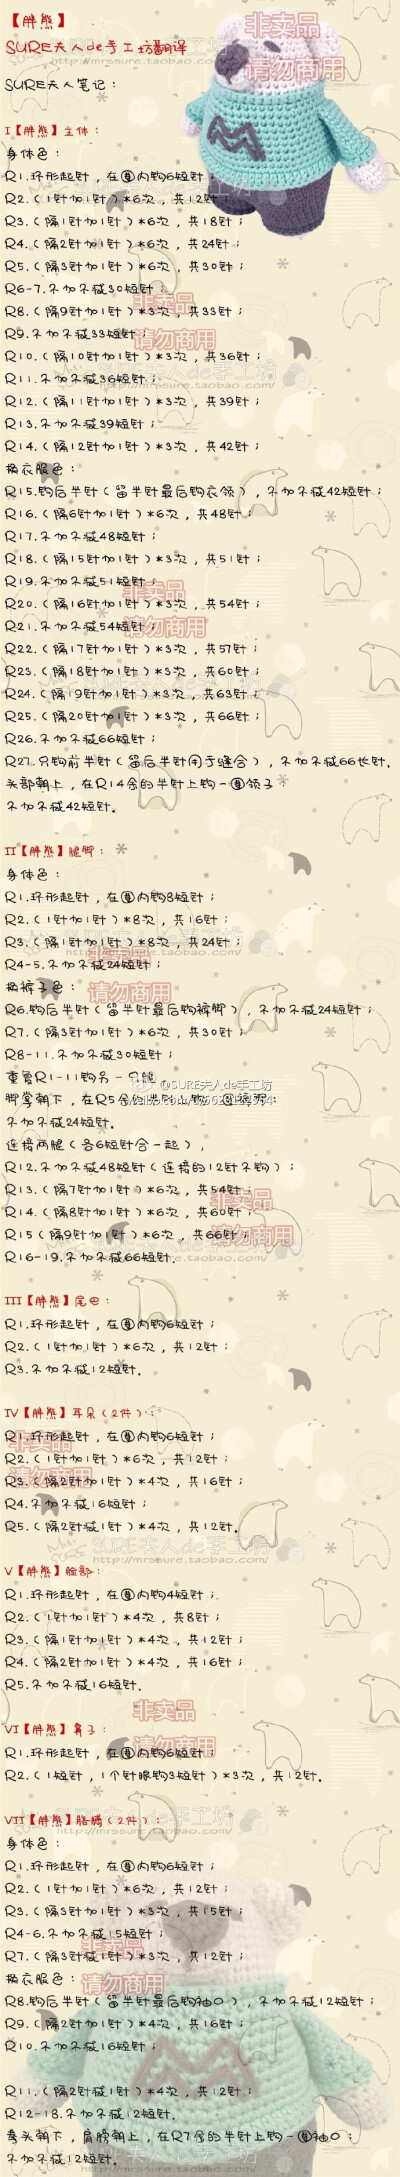 【胖熊】
SURE夫人de手工坊翻译
SURE夫人笔记：
非卖品
请勿商用
I【胖熊】主体：
身体色：
R1.环形起针，在圈内钩6短针；
R2.（1针加1针）*6次，共12针；
R3.（隔1针加1针）*6次，共18针；
R4.（隔2针加1针）*6次，共24针；
R5.（隔3针加1针）*6次，共30针；
R6-7.不加不减30短针；
R8.（隔9针加1针）*3次，共33针；
R9.不加不减33短针；
R10.（隔10针加1针）*3次，共36针；
R11.不加不减36短针；
R12.（隔11针加1针）*3次，共39针；
R13.不加不减39短针；
R14.（隔12针加1针）*3次，共42针；
换衣服色：
R15.钩后半针（留半针最后钩衣领），不加不减42短针；
R16.（隔6针加1针）*6次，共48针；
R17.不加不减48短针；
R18.（隔15针加1针）*3次，共51针；
R19.不加不减51短针；
R20.（隔16针加1针）*3次，共54针；
R21.不加不减54短针；
R22.（隔17针加1针）*3次，共57针；
R23.（隔18针加1针）*3次，共60针；
R24.（隔19针加1针）*3次，共63针；
R25.（隔20针加1针）*3次，共66针；
R26.不加不减66短针；
R27.只钩前半针（留后半针用于缝合），不加不减66长针。
头部朝上，在R14余的半针上钩一圈领子：
不加不减42短针。
II【胖熊】腿脚：
身体色：
R1.环形起针，在圈内钩8短针；
R2.（1针加1针）*8次，共16针；
R3.（隔1针加1针）*8次，共24针；
R4-5.不加不减24短针；
换裤子色：
R6.钩后半针（留半针最后钩裤脚），不加不减24短针；
R7.（隔3针加1针）*6次，共30针；
R8-11.不加不减30短针；
重复R1-11钩另一只腿
@SURE夫人de手工坊
脚掌朝下，在R5余的半针上钩一圈裤脚：
不加不减24短针。
连接两腿（各6短针合一起），
R12.不加不减48短针（连接的12针不钩）；
R13.（隔7针加1针）*6次，共54针；
R14.（隔8针加1针）*6次，共60针；
R15（隔9针加1针）*6次，共66针；
R16-19.不加不减66短针
III【胖熊】尾巴：
R1.环形起针，在圈内钩6短针；
R2.（1针加1针）*6次，共12针；
R3.不加不减12短针。
IV【胖熊】耳朵（2件）：
R1.环形起针，在圈内钩6短针；
R2.（1针加1针）*6次，共12针；
R3.（隔2针加1针）*4次，共16针；
R4.不加不减16短针；
R5.（隔2针减1针）*4次，共12针。
V【胖熊】脸部：
R1.环形起针，在圈内钩4短针；
R2.（1针加1针）*4次，共8针；
R3.（隔1针加1针）*4次，共12针；
R4.（隔2针加1针）*4次，共16针；
R5.不加不减16短针。
VI【胖熊】鼻子：
R1.环形起针，在圈内钩6短针；
R2.（1短针，1个针眼钩3短针）*3次，共12针。
VII【胖熊】胳膊（2件）：
身体色：
R1.环形起针，在圈内钩6短针；
R2.（1针加1针）*6次，共12针；
R3.（隔3针加1针）*3次，共15针；
R4-6.不加不减15短针；
R7.（隔3针减1针）*3次，共12针；
换衣服色：
R8.钩后半针（留半针最后钩袖口），不加不减12短针；
R9.（隔2针加1针）*4次，共16针；
R10.不加不减16短针；
R11.（隔2针减1针）*4次，共12针；
R12-18.不加不减12短针。
拳头朝下，肩膀朝上，在R7余的半针上钩一圈袖口：
不加不减12短针。